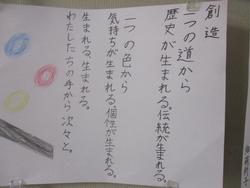 創造
一つの道から
歴史が生まれる。伝統が生まれる。
一つの色から
気持ちが生まれる。個性が生まれる。
生まれる、生まれる。
わたしたちの手から次々と。